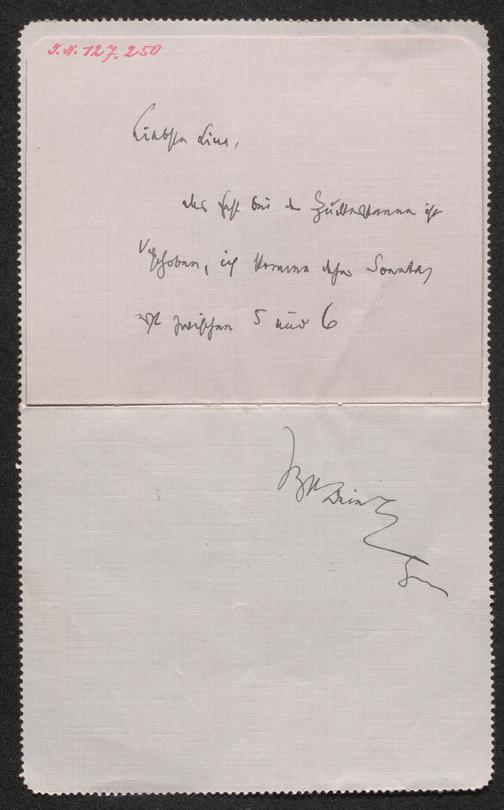 I.N. 127.250
Liebste Lina,
das Fest bei der Zuckerkanna ist
verschoben, ich komme daher Sonntag
erst zwischen 5 und 6
Dein